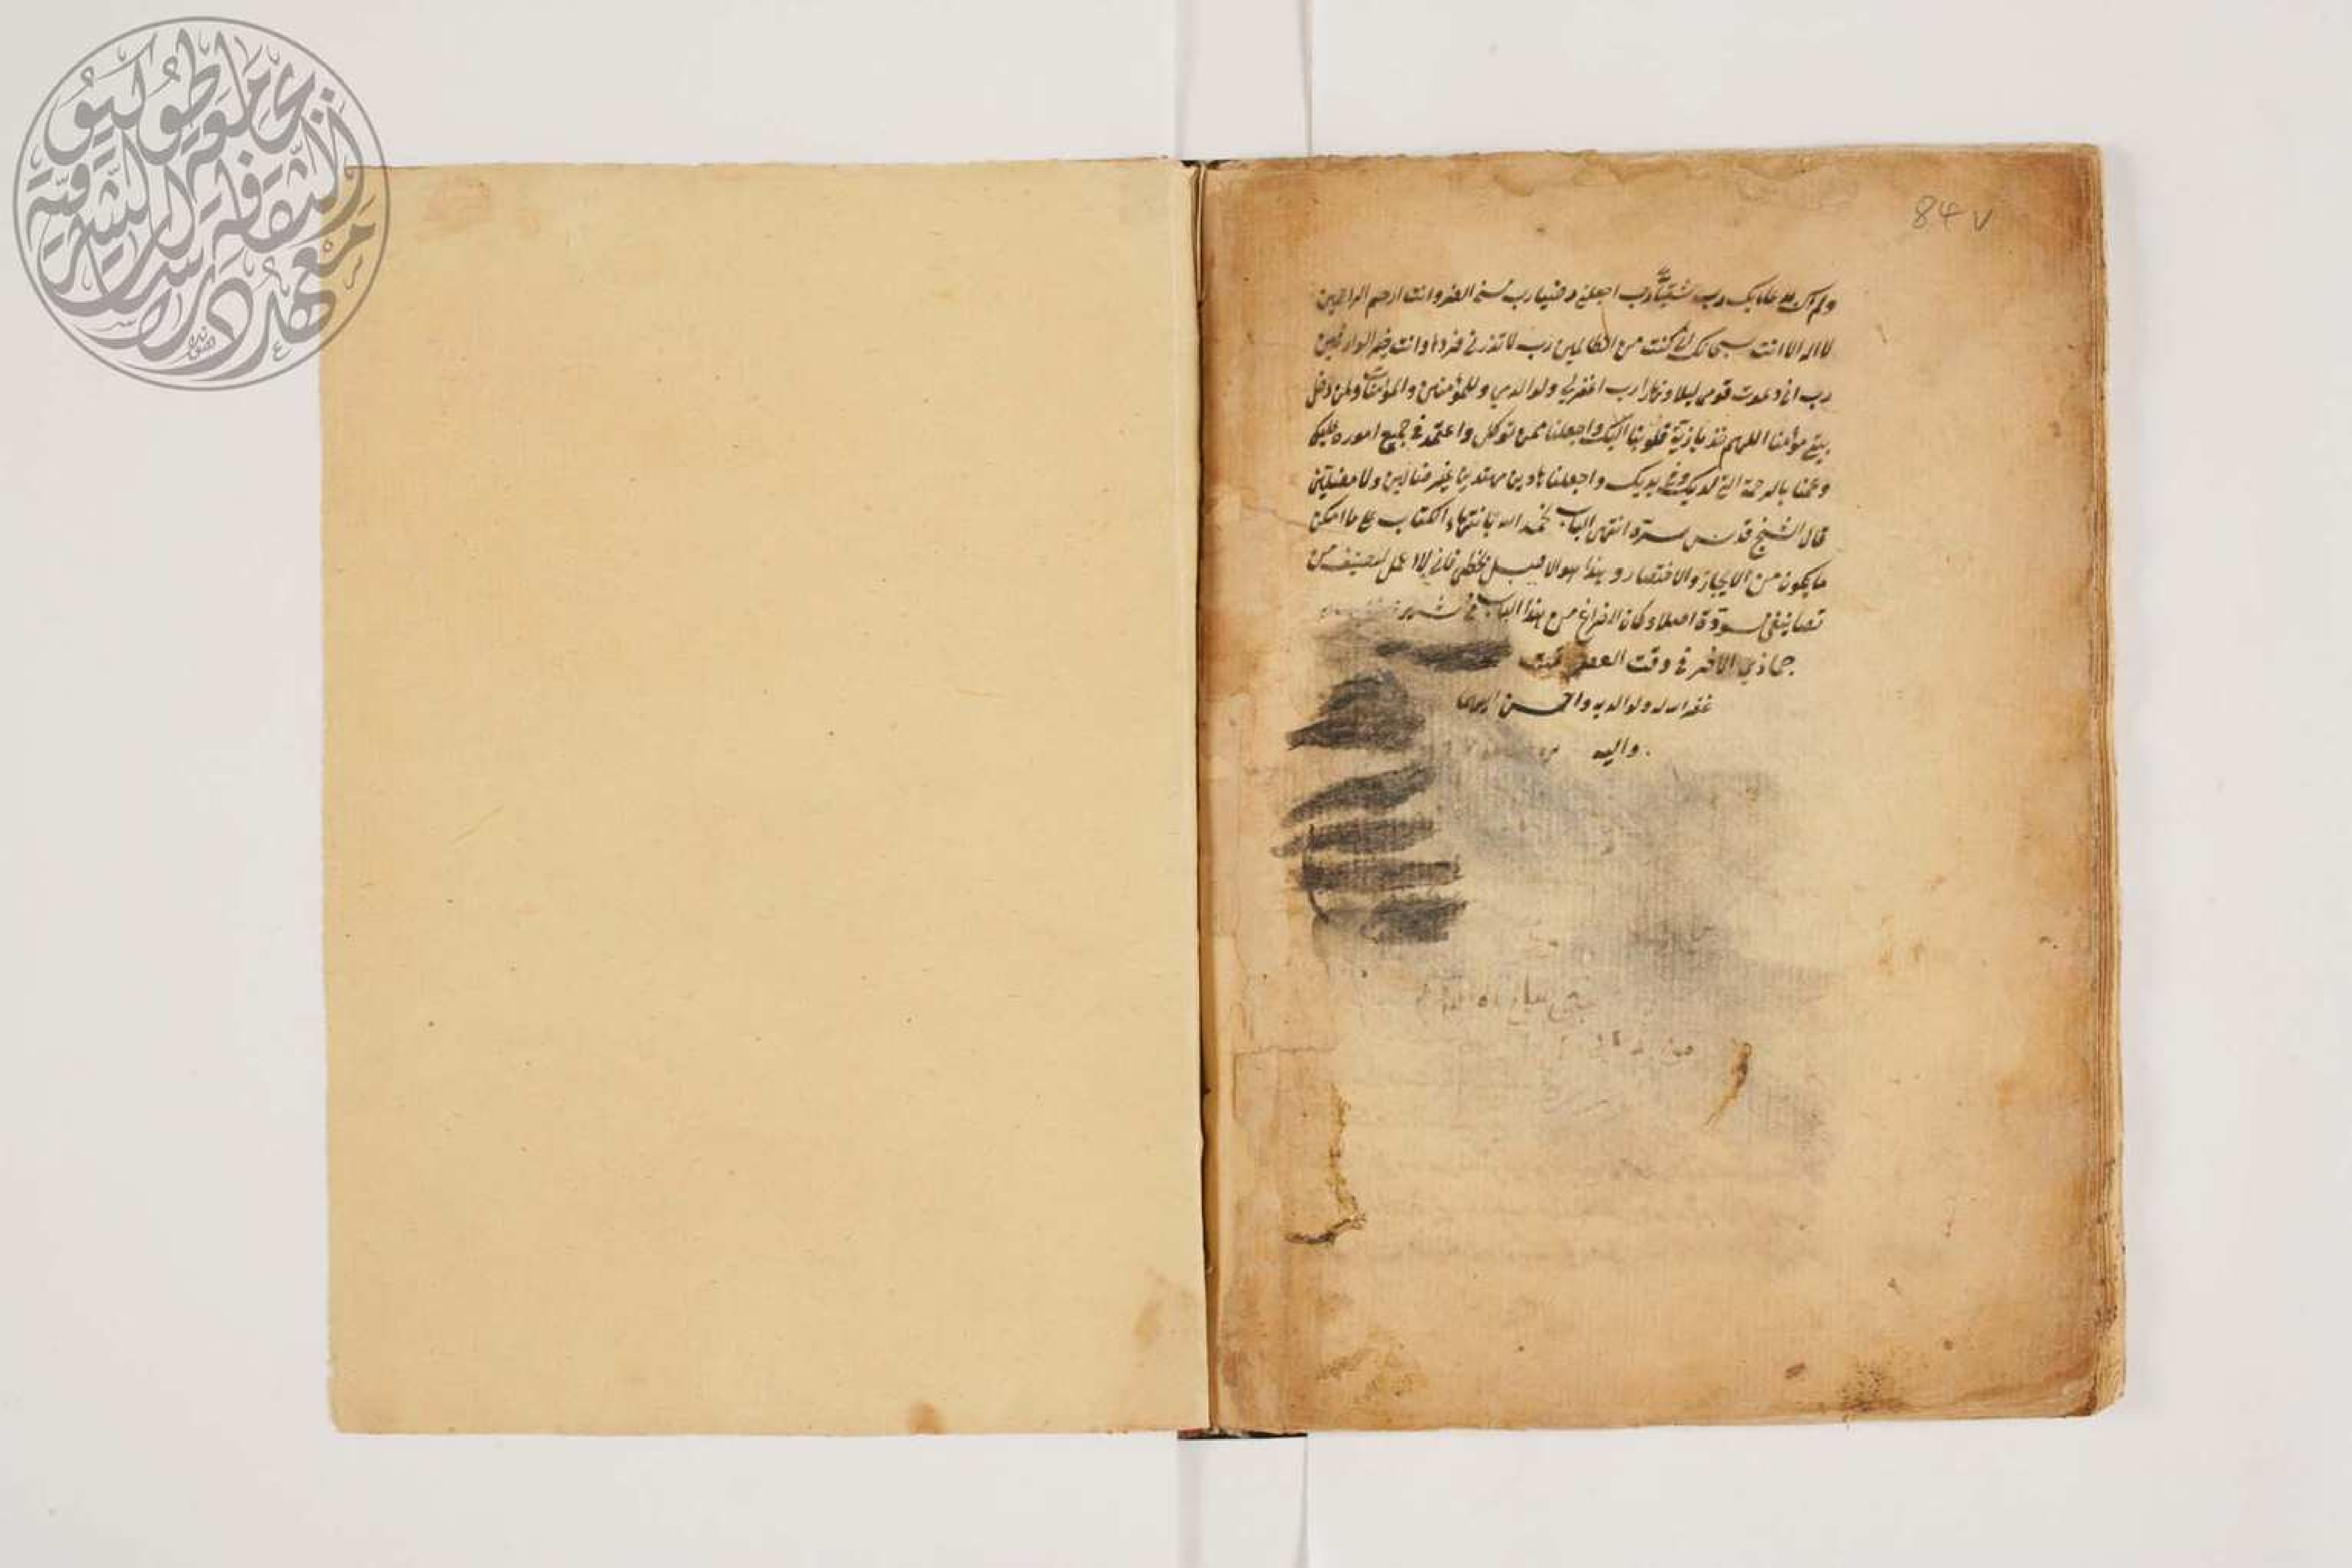 84 v
ولم اكن بدعائك رب شقيا رب اجعله رضيا رب مسني الضر وانت ارحم الراحمين
لا اله الا انت سبحانك اني كنت من الظالمين رب لا تذرني فردا وانت خير الوارثين
رب اني دعوت قومي ليلا ونهارا رب اغفر لي ولوالدي وللمؤمنين والمؤمنات ولمن دخل
بيتي مؤمنا اللهم خذ بازمة قلوبنا اليك واجعلنا ممن توكل واعتمد في جميع اموره عليك
وعمنا بالرحمة التي لديك وفي يديك واجعلنا هادين مهتدين غير ضالين ولا مضلين
قال الشيخ قدس سره انتهى الباب بحمد الله بانتهاء الكتاب على ما امكن
ما يكون من الايجاز والاختصار وهذا هو الاصل بخطي فاني لا اعمل لتصنيف من
تصانيفي مسودة اصلا وكان الفراغ من هذا الباب في
جمادي الاخر في وقت العصر تمت
غفر الله له ولوالديه واحسن اليهما
واليه
جامعة طوكيو
الثقافة الشرقية
معهد دراسات